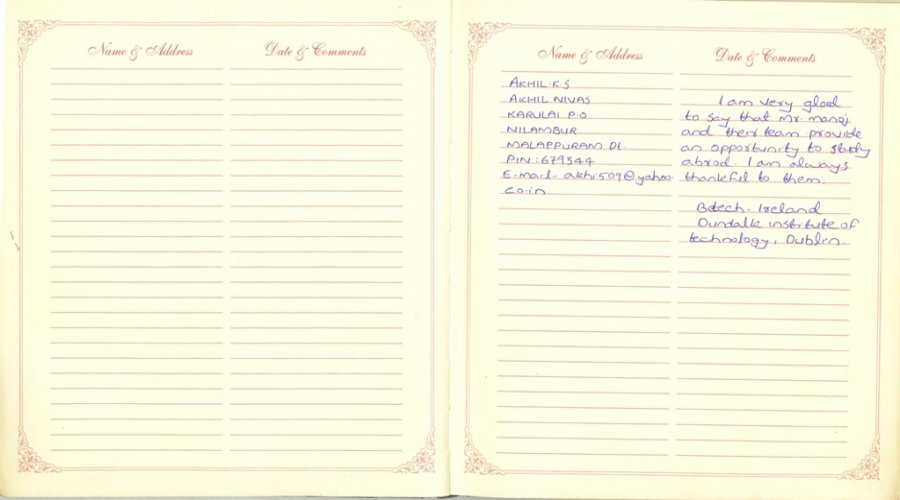 Name & Address
Date & Comments
Name & Address
Date & Comments
AKHIL.K.S
AKHIL NIVAS
KARULAI P.O
NILAMBUR
MALAPPURAM Dt.
PIN: 679344
E.mail. akhi509@yahoo.
co.in
I am very glad
to say that Mr. manoj
and their team provide
an opportunity to study
abrod. I am always
thankful to them.
Btech. Ireland
Dundalk institute of
technology, Dublin.